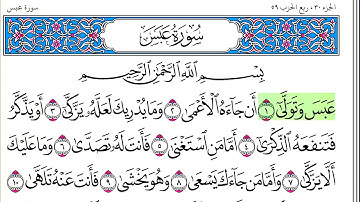 الجزء ٣٠، ربع الحزب ٥٩ سورة عبس
سُورَةُ عَبَسَ
بِسْمِ اللَّهِ الرَّحْمَٰنِ الرَّحِيمِ
عَبَسَ وَتَوَلَّىٰ ١ أَن جَاءَهُ الْأَعْمَىٰ ٢ وَمَا يُدْرِيكَ لَعَلَّهُ يَزَّكَّىٰ ٣ أَوْ يَذَّكَّرُ
فَتَنفَعَهُ الذِّكْرَىٰ ٤ أَمَّا مَنِ اسْتَغْنَىٰ ٥ فَأَنتَ لَهُ تَصَدَّىٰ ٦ وَمَا عَلَيْكَ
أَلَّا يَزَّكَّىٰ ٧ وَأَمَّا مَن جَاءَكَ يَسْعَىٰ ٨ وَهُوَ يَخْشَىٰ ٩ فَأَنتَ عَنْهُ تَلَهَّىٰ ١٠